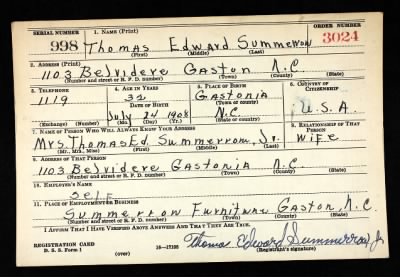 SERIAL NUMBER 1. NAME (Print) ORDER NUMBER
998 Thomas Edward Summerrow 3024
(First) (Middle) (Last)
2. ADDRESS (Print)
1103 Belvidere Gaston N.C
(Number and street or R. F. D. number) (Town) (County) (State)
3. TELEPHONE 4. AGE IN YEARS 5. PLACE OF BIRTH 6. COUNTRY OF CITIZENSHIP
1119 32 Gastonia
DATE OF BIRTH (Town or county)
July 24 1908 N.C. U.S.A.
(Exchange) (Number) (Mo.) (Day) (Yr.) (State or country)
7. NAME OF PERSON WHO WILL ALWAYS KNOW YOUR ADDRESS 8. RELATIONSHIP OF THAT PERSON
Mrs. Thomas Ed. Summerrow, Jr. wife
(Mr., Mrs., Miss) (First) (Middle) (Last)
9. ADDRESS OF THAT PERSON
1103 Belvidere Gastonia N.C
(Number and street or R. F. D. number) (Town) (County) (State)
10. EMPLOYER'S NAME
Self
11. PLACE OF EMPLOYMENT OR BUSINESS
Summerrow Furniture Gaston, N.C.
(Number and street or R. F. D. number) (Town) (County) (State)
I AFFIRM THAT I HAVE VERIFIED ABOVE ANSWERS AND THAT THEY ARE TRUE.
REGISTRATION CARD Thomas Edward Summerrow Jr
D. S. S. Form 1 16—17105 (Registrant's signature)
(over)